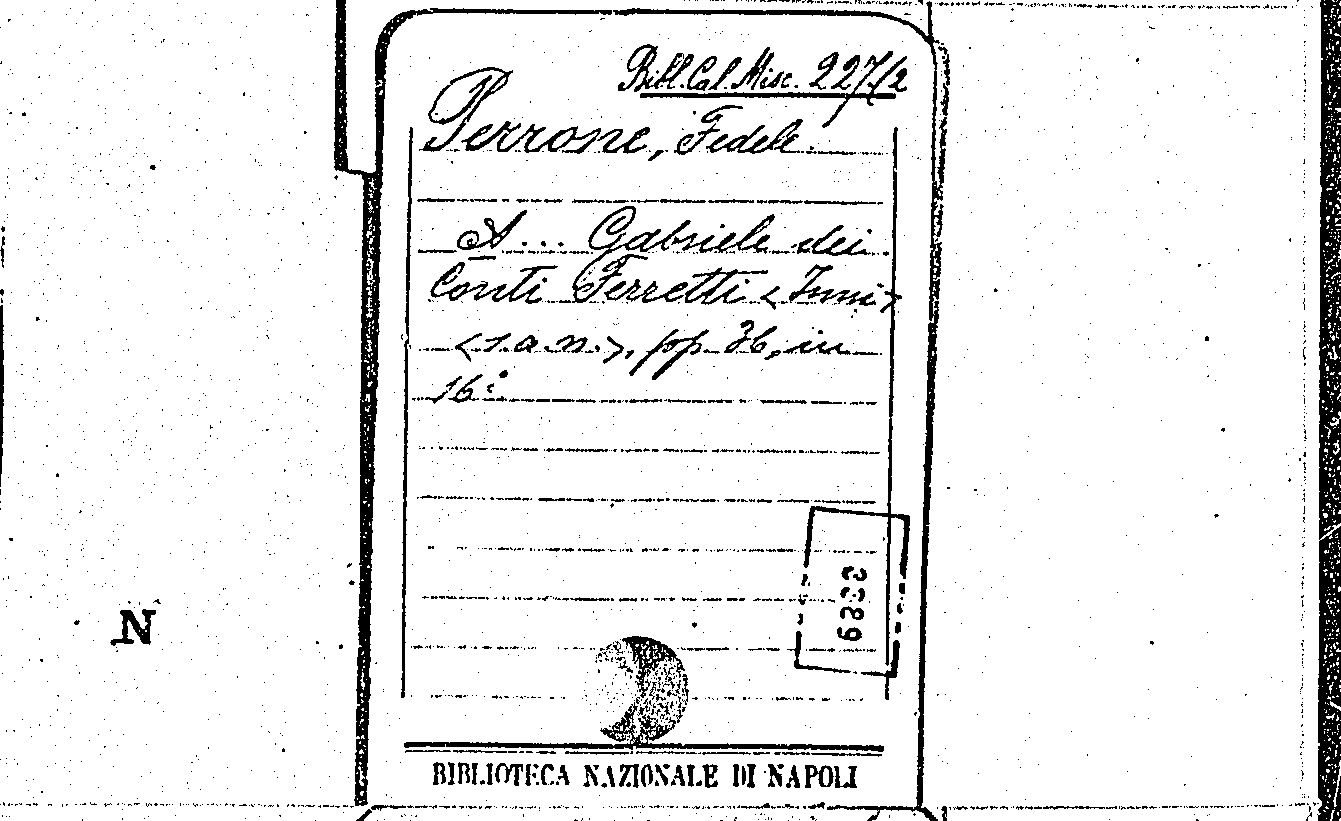 Bibl. Cal. Misc. 227/2
Perrone, Fedele.
A... Gabriele dei
Conti Ferretti <Inni>
<s.a.n.>, pp. 36, in
16°
N
BIBLIOTECA NAZIONALE DI NAPOLI